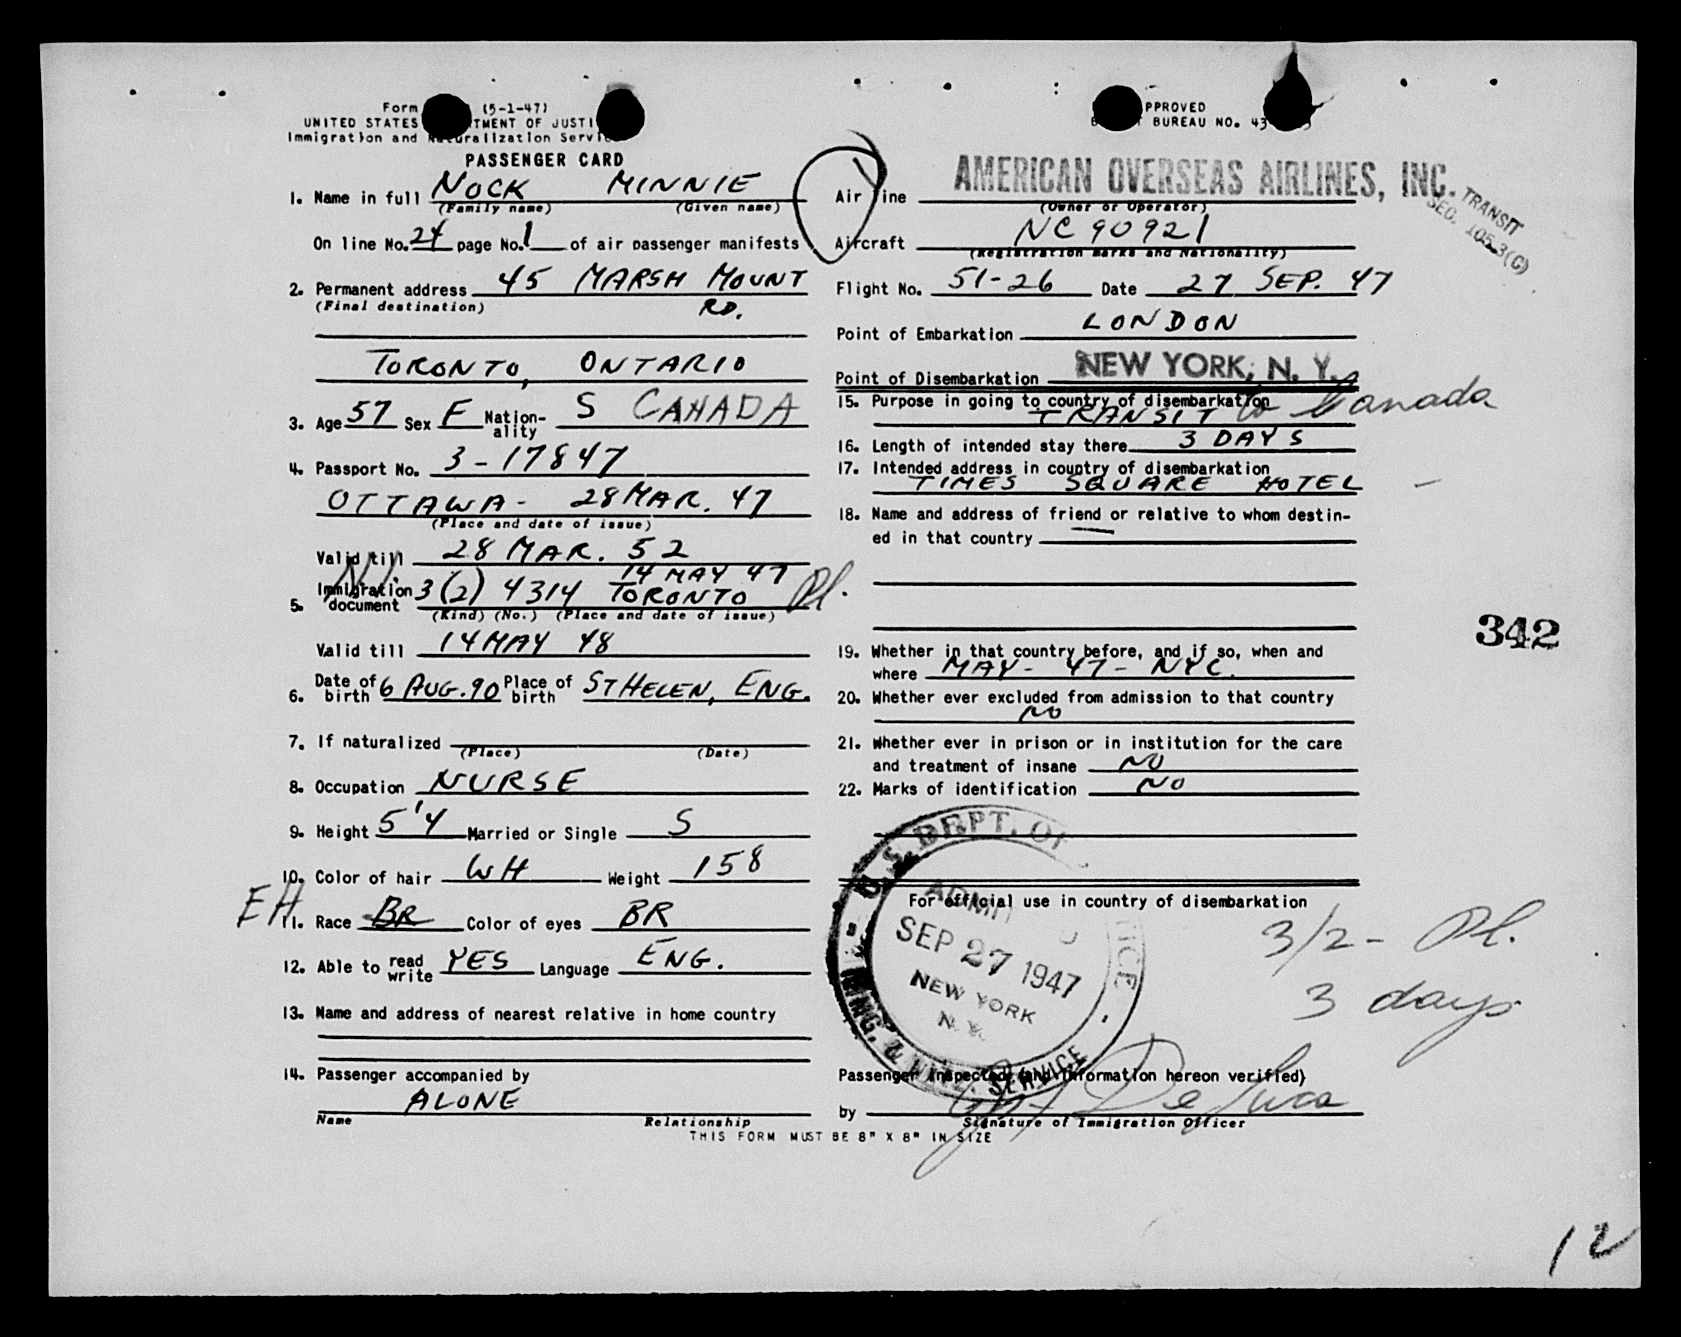 Form (5-1-47)
UNITED STATES DEPARTMENT OF JUSTICE
Immigration and Naturalization Service
PASSENGER CARD
1. Name in full NOCK MINNIE
(Family name) (Given name)
On line No. 24 page No. 1 of air passenger manifests
2. Permanent address 45 MARSH MOUNT
(Final destination) RD.
TORONTO, ONTARIO
3. Age 57 Sex F Nation-ality S CANADA
4. Passport No. 3-17847
OTTAWA - 28 MAR. 47
(Place and date of issue)
Valid till 28 MAR. 52
14 MAY 47
5. Immigration document 3(2) 4314 TORONTO
(Kind) (No.) (Place and date of issue)
Valid till 14 MAY 48
6. Date of birth 6 AUG. 90 Place of birth ST HELEN, ENG.
7. If naturalized
(Place) (Date)
8. Occupation NURSE
9. Height 5'4 Married or Single S
10. Color of hair WH Weight 158
EH
11. Race BR Color of eyes BR
12. Able to read write YES Language ENG.
13. Name and address of nearest relative in home country
14. Passenger accompanied by
ALONE
Name Relationship
THIS FORM MUST BE 8" X 8" IN SIZE
APPROVED
BUREAU NO. 43
AMERICAN OVERSEAS AIRLINES, INC.
TRANSIT
SEC. 105.3(C)
Air line
(Owner or Operator)
Aircraft NC 90921
(Registration marks and Nationality)
Flight No. 51-26 Date 27 SEP. 47
Point of Embarkation LONDON
Point of Disembarkation NEW YORK, N. Y.
15. Purpose in going to country of disembarkation
TRANSIT to Canada
16. Length of intended stay there 3 DAYS
17. Intended address in country of disembarkation
TIMES SQUARE HOTEL
18. Name and address of friend or relative to whom destin-
ed in that country
342
19. Whether in that country before, and if so, when and
where MAY - 47 - NYC.
20. Whether ever excluded from admission to that country
NO
21. Whether ever in prison or in institution for the care
and treatment of insane NO
22. Marks of identification NO
U.S. DEPT. OF
IMMG. & NATZ. SERVICE
ADMITTED
SEP 27 1947
NEW YORK
N.Y.
For official use in country of disembarkation
3/2 - Pl.
3 days
Passenger inspected (and information hereon verified)
by De Luca
Signature of Immigration Officer
12